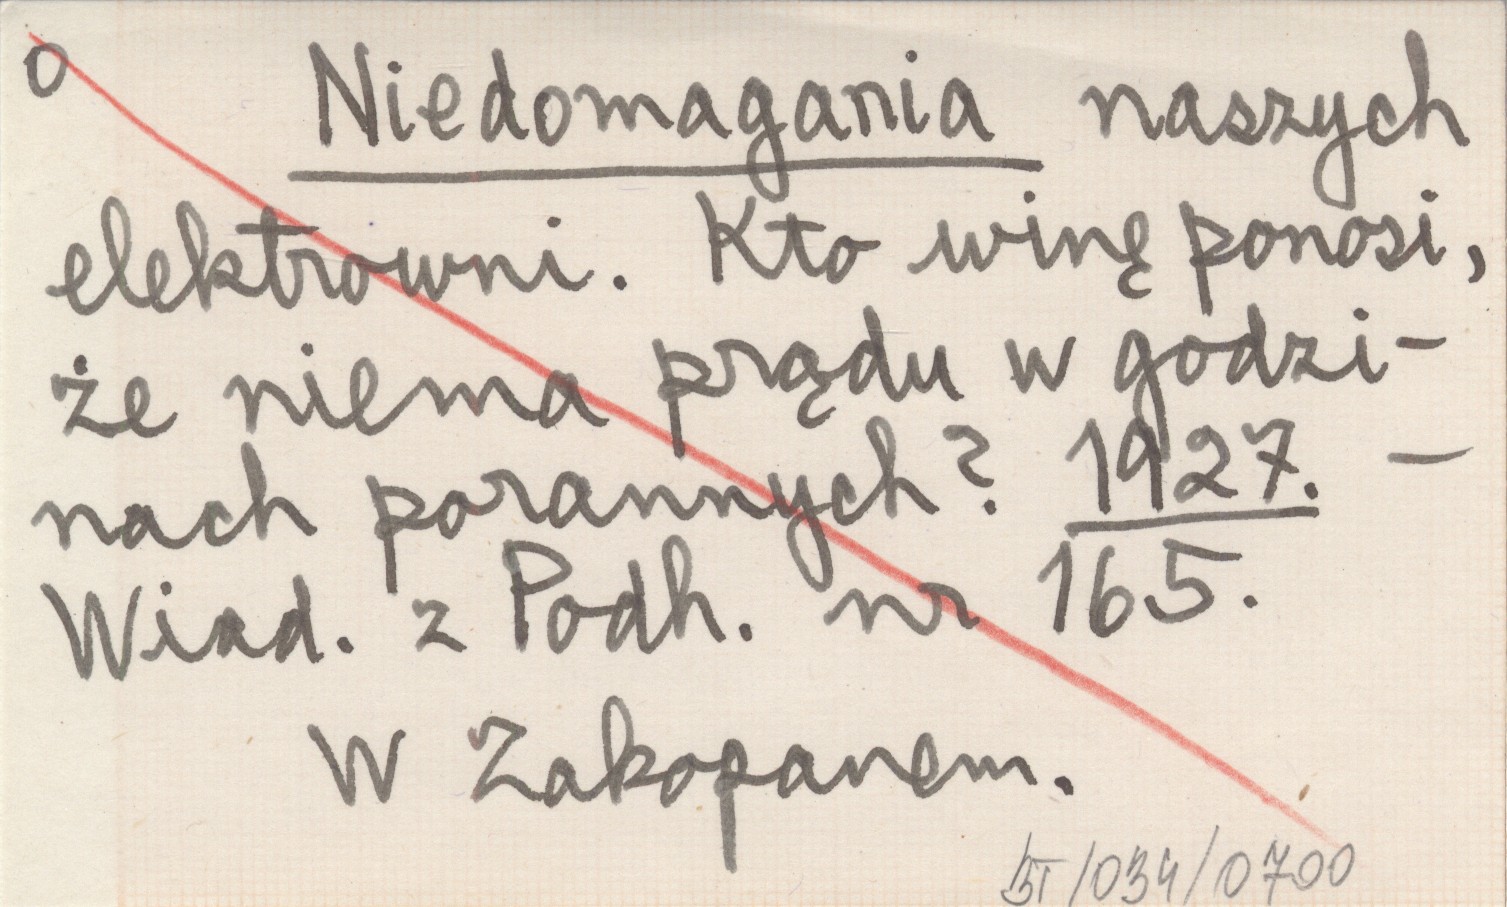 o Niedomagania naszych
elektrowni. Kto winę ponosi,
że niema prądu w godzi-
nach porannych? 1927. –
Wiad. z Podh. nr 165.
W Zakopanem.
BT/034/0700